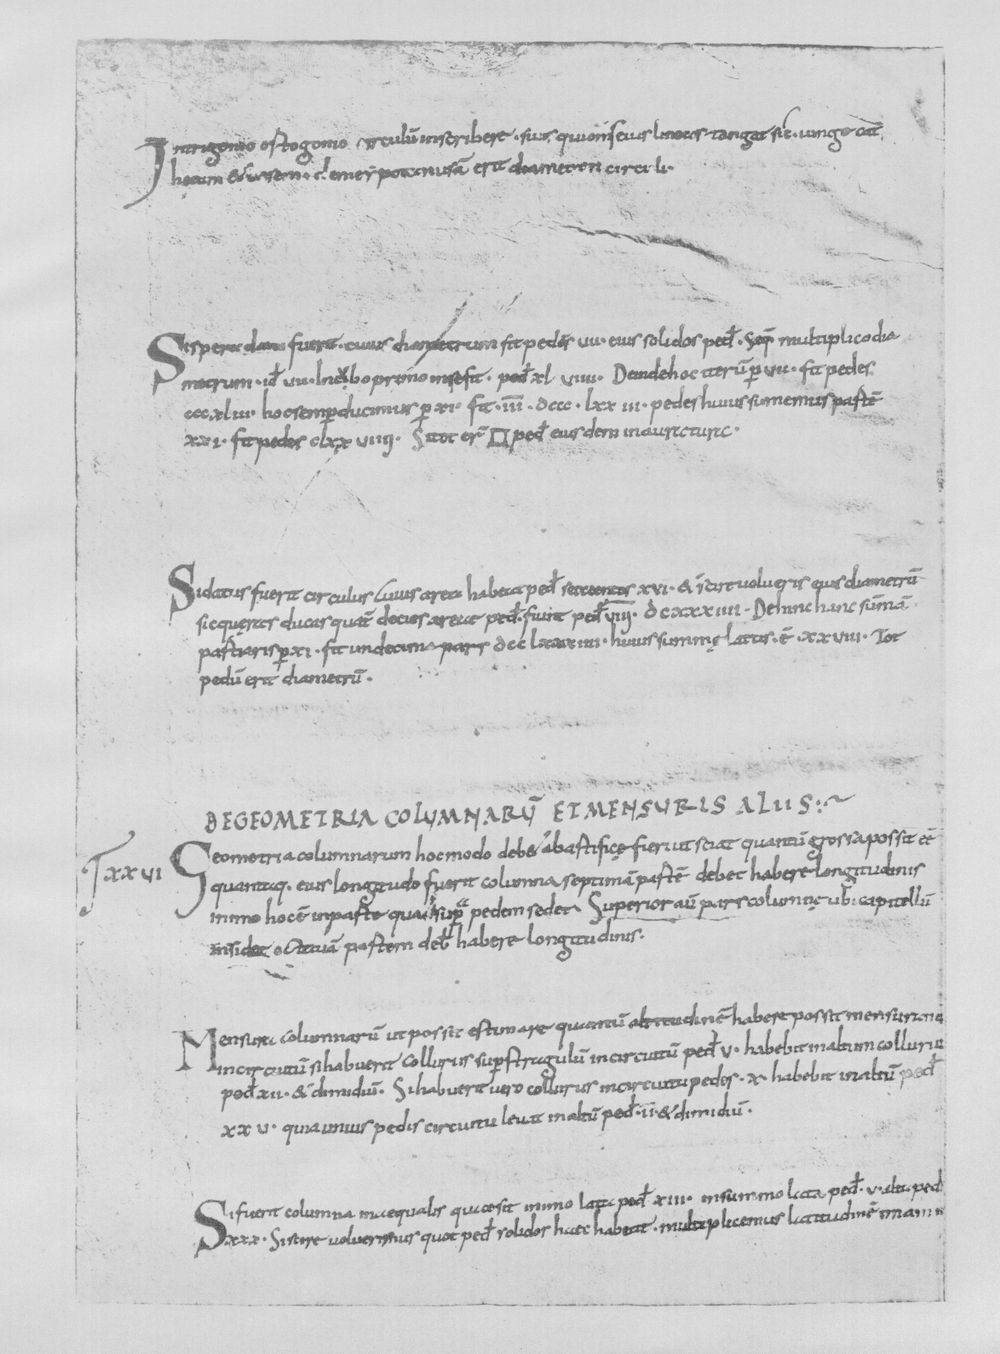 In trigono ostogonio circulū inscribere · qui omīs eius lineas tangat sic · iungo cat
hetum & basem · deme ypotenusā erit diametron circuli ·
Si spera fuerit · cuius diametrum sit pedes vii · eius solidos ped · Seq̄ multiplico dia
metrum · id vii · In se fit · ped xl viiii · Deinde hoc iterū p vii · fit pedes
cccxliii · hoc semper ducimus p xi · fit · iii · dccc · lxxiii · pedes huius sumemus partē
xxi · fit pedes clxxviiii · Si tot er̄ □ ped eiusdem inaurature ·
Si datus fuerit circulus cuius area habeat ped xvi · & scire volueris eius diametrū
sic quęras ducas quater decies areae ped · fiunt ped viiii · dcxxxiiii · Dehinc hanc sūmā
partiaris p xi · fit undecima pars dccclxxxiiii · huius summę latus · ē · xxviii · Tot
pedū erit diametrū ·
DE GEOMETRIA COLUMNARŪ ET MENSURIS ALIIS :~
xxvi Geometria columnarum hoc modo debet ab artifice fieri ut sciat quantū grossa possit eē
quantaq · eius longitudo fuerit columna septimā partē debet habere longitudinis
in imo hoc ē in parte qua sup pedem sedet · Superior aū pars columnę ubi capitellū
insidet octavā partem deb habere longitudinis ·
Mensura columnarū ut possit estimare quantū altitudinē habere possit mensurane
in circuitū si habuerit collurius sup stragulū in circuitū ped v · habebit in altum colluriu
ped xii · & dimidiū · Si habuerit vero collurius in circuitu pedes · x · habebit in altū ped
xxv · quia unius pedis circuitu levat in altū ped · ii & dimidiū ·
Si fuerit columna inaequalis quae sit in imo lata ped xiii · in summo lata ped · v · alta ped
xxx · Si scire voluerimus quot ped solidos haec habeat · multiplicemus latitudinē imam in